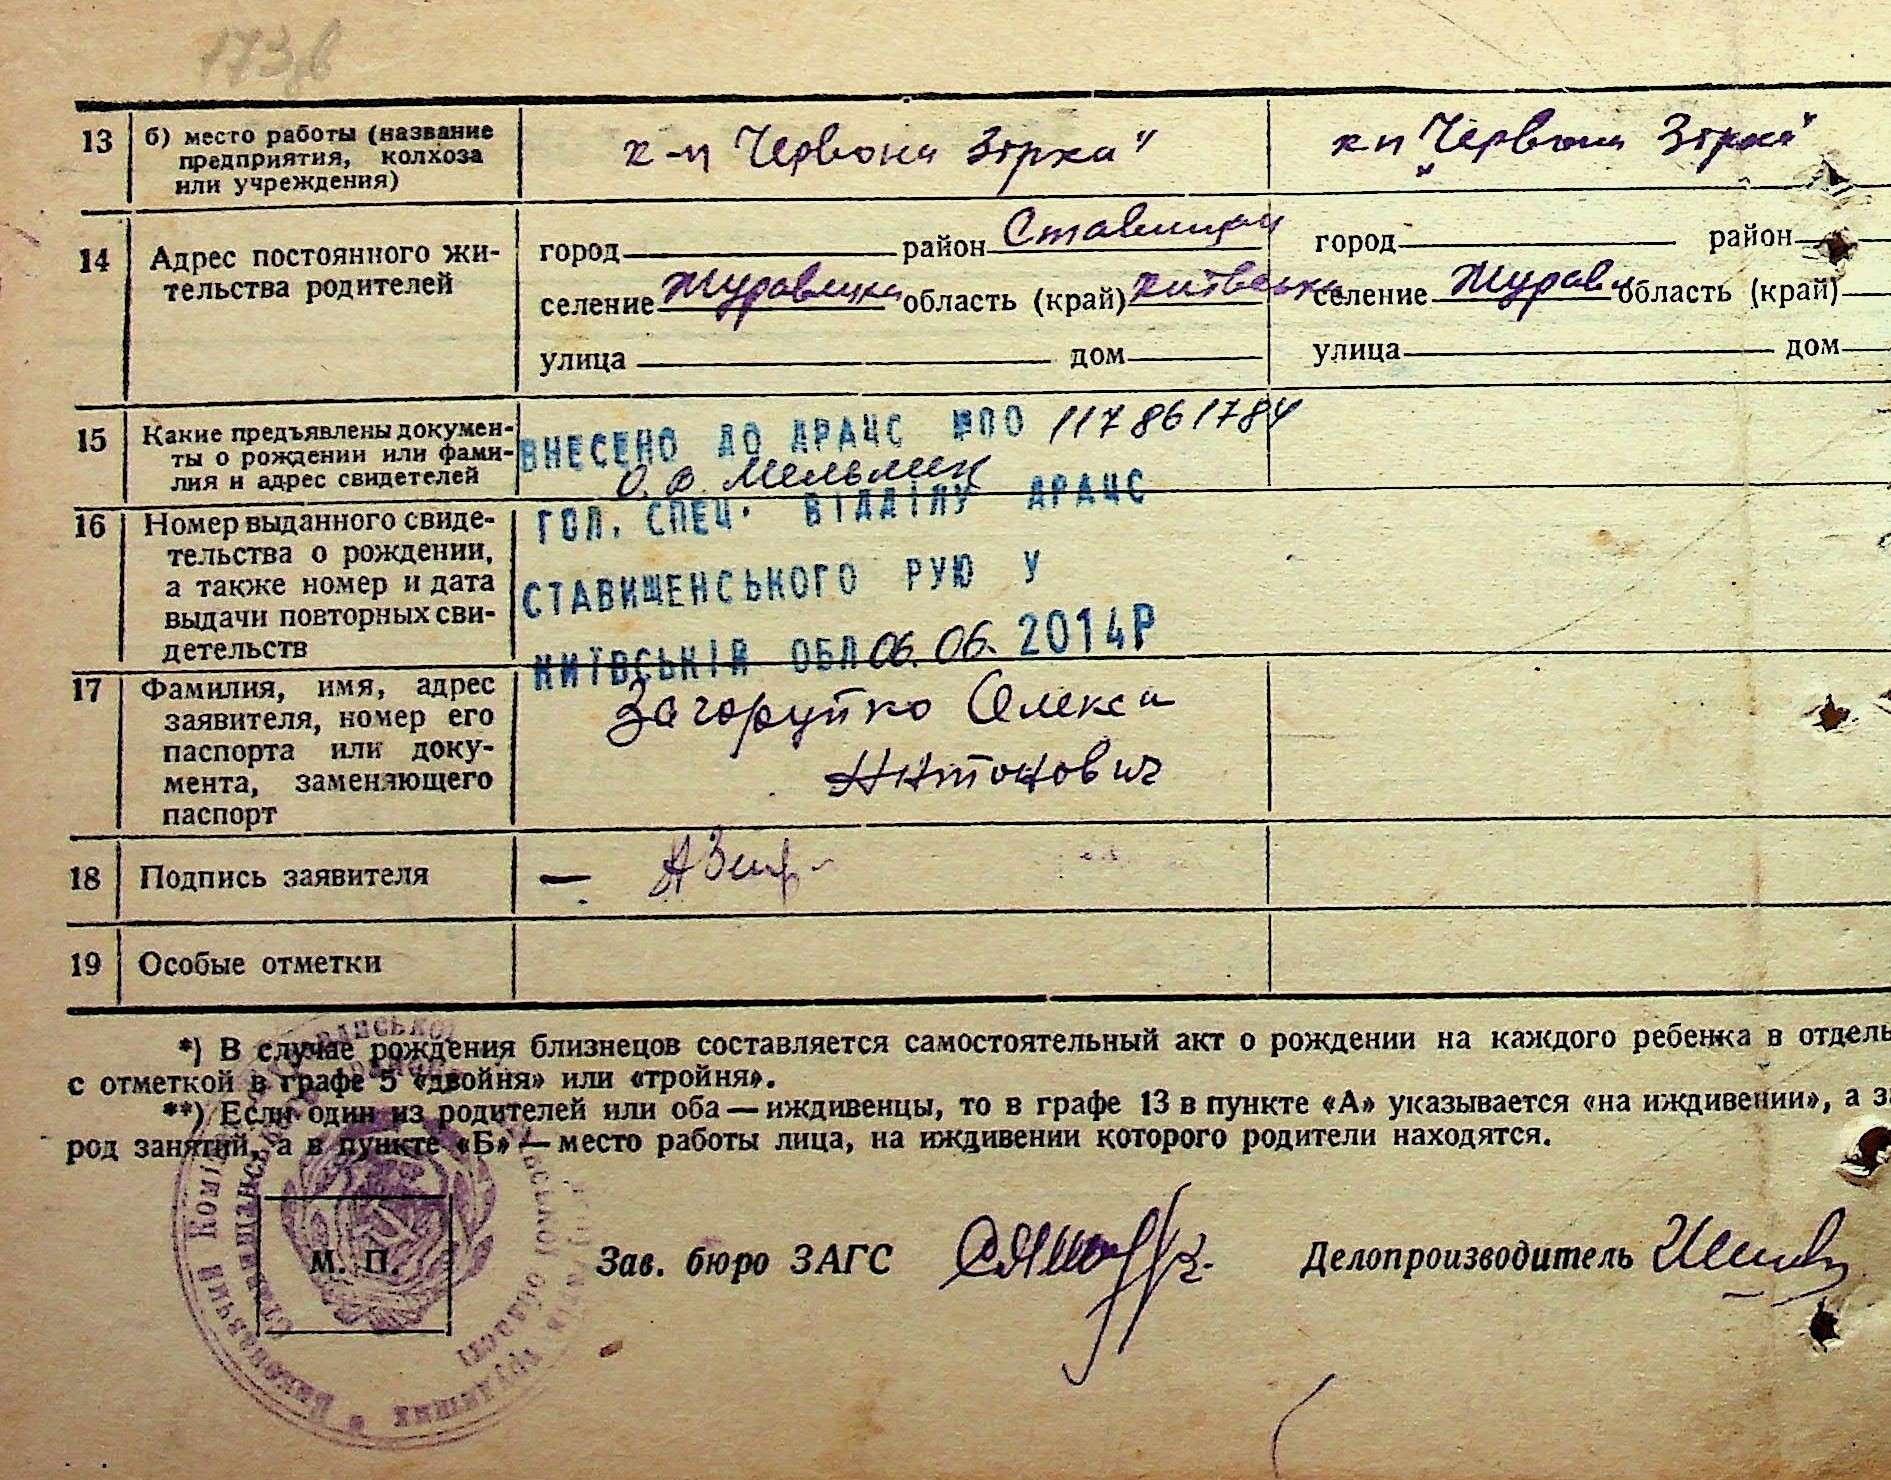 173 в
13 б) место работы (название
предприятия, колхоза
или учреждения)
к-п Червона Зірка"
кп "Червона Зірка"
14 Адрес постоянного жи-
тельства родителей
город район
селение Журавлиха область (край) Київська
улица дом
город район
селение Журавл область (край)
улица дом
15 Какие предъявлены докумен-
ты о рождении или фами-
лия и адрес свидетелей
ВНЕСЕНО ДО ДРАЦС №ПО 117861784
О. В. Мельник
16 Номер выданного свиде-
тельства о рождении,
а также номер и дата
выдачи повторных сви-
детельств
ГОЛ. СПЕЦ. ВІДДІЛУ ДРАЦС
СТАВИЩЕНСЬКОГО РУЮ У
КИЇВСЬКІЙ ОБЛ 06. 06. 2014Р
17 Фамилия, имя, адрес
заявителя, номер его
паспорта или доку-
мента, заменяющего
паспорт
Загоруйко Олекса
Антонович
18 Подпись заявителя
19 Особые отметки
*) В случае рождения близнецов составляется самостоятельный акт о рождении на каждого ребенка в отдель
с отметкой в графе 5 «двойня» или «тройня».
**) Если один из родителей или оба — иждивенцы, то в графе 13 в пункте «А» указывается «на иждивении», а за
род занятий, а в пункте «Б» — место работы лица, на иждивении которого родители находятся.
М. П.
Зав. бюро ЗАГС
Делопроизводитель
Виконавчий Коміт
трудящих
області